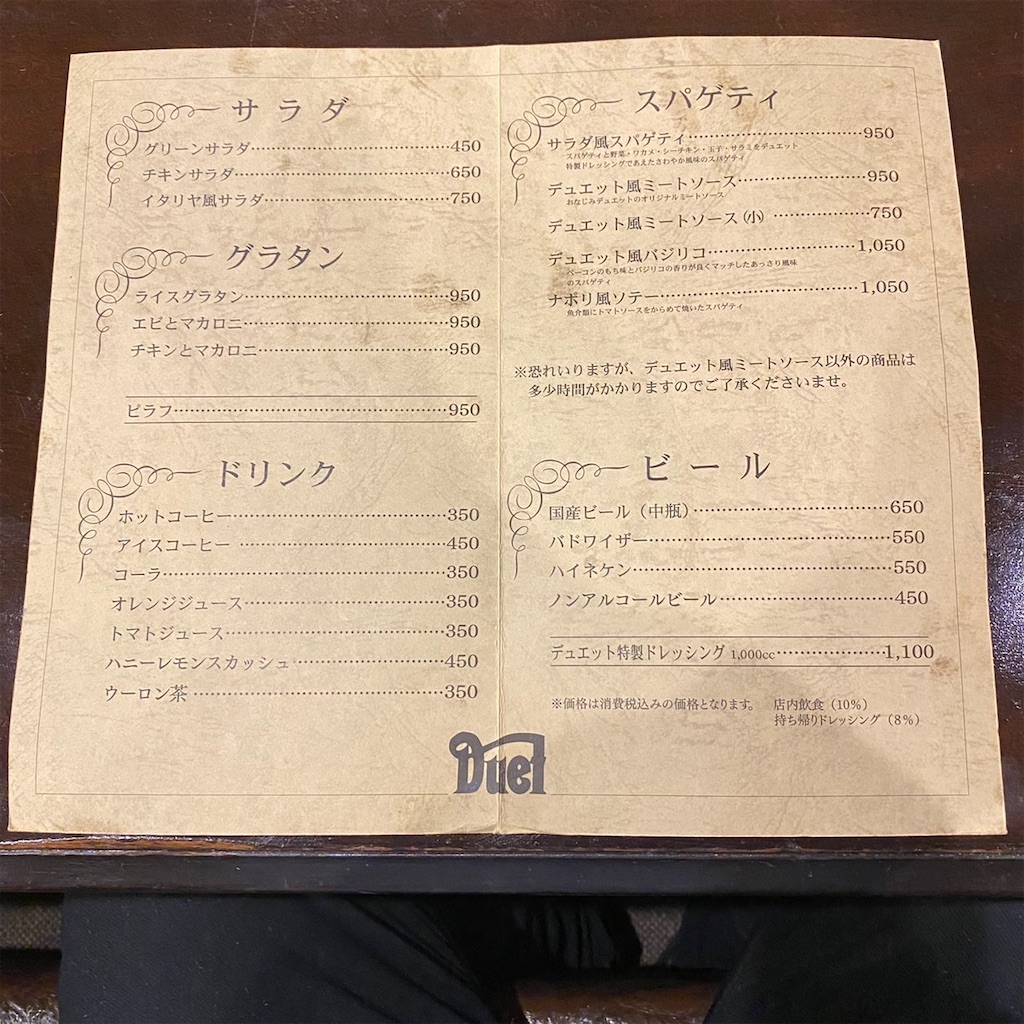 サラダ
グリーンサラダ…………………………450
チキンサラダ……………………………650
イタリヤ風サラダ………………………750
グラタン
ライスグラタン…………………………950
エビとマカロニ…………………………950
チキンとマカロニ………………………950
ピラフ……………………………………950
ドリンク
ホットコーヒー…………………………350
アイスコーヒー …………………………450
コーラ……………………………………350
オレンジジュース………………………350
トマトジュース…………………………350
ハニーレモンスカッシュ………………450
ウーロン茶 ………………………………350
スパゲティ
サラダ風スパゲティ……………………950
スパゲティと野菜・ワカメ・シーチキン・玉子・サラミをデュエット
特製ドレッシングであえたさわやか風味のスパゲティ
デュエット風ミートソース……………950
おなじみデュエットのオリジナルミートソース
デュエット風ミートソース(小) …………750
デュエット風バジリコ…………………1,050
ベーコンのもち味とバジリコの香りが良くマッチしたあっさり風味
のスパゲティ
ナポリ風ソテー…………………………1,050
魚介類にトマトソースをからめて焼いたスパゲティ
※恐れいりますが、デュエット風ミートソース以外の商品は
多少時間がかかりますのでご了承くださいませ。
ビール
国産ビール(中瓶)………………………650
バドワイザー……………………………550
ハイネケン………………………………550
ノンアルコールビール…………………450
デュエット特製ドレッシング 1,000cc……………1,100
※価格は消費税込みの価格となります。 店内飲食(10%)
持ち帰りドレッシング(8%)
Duet